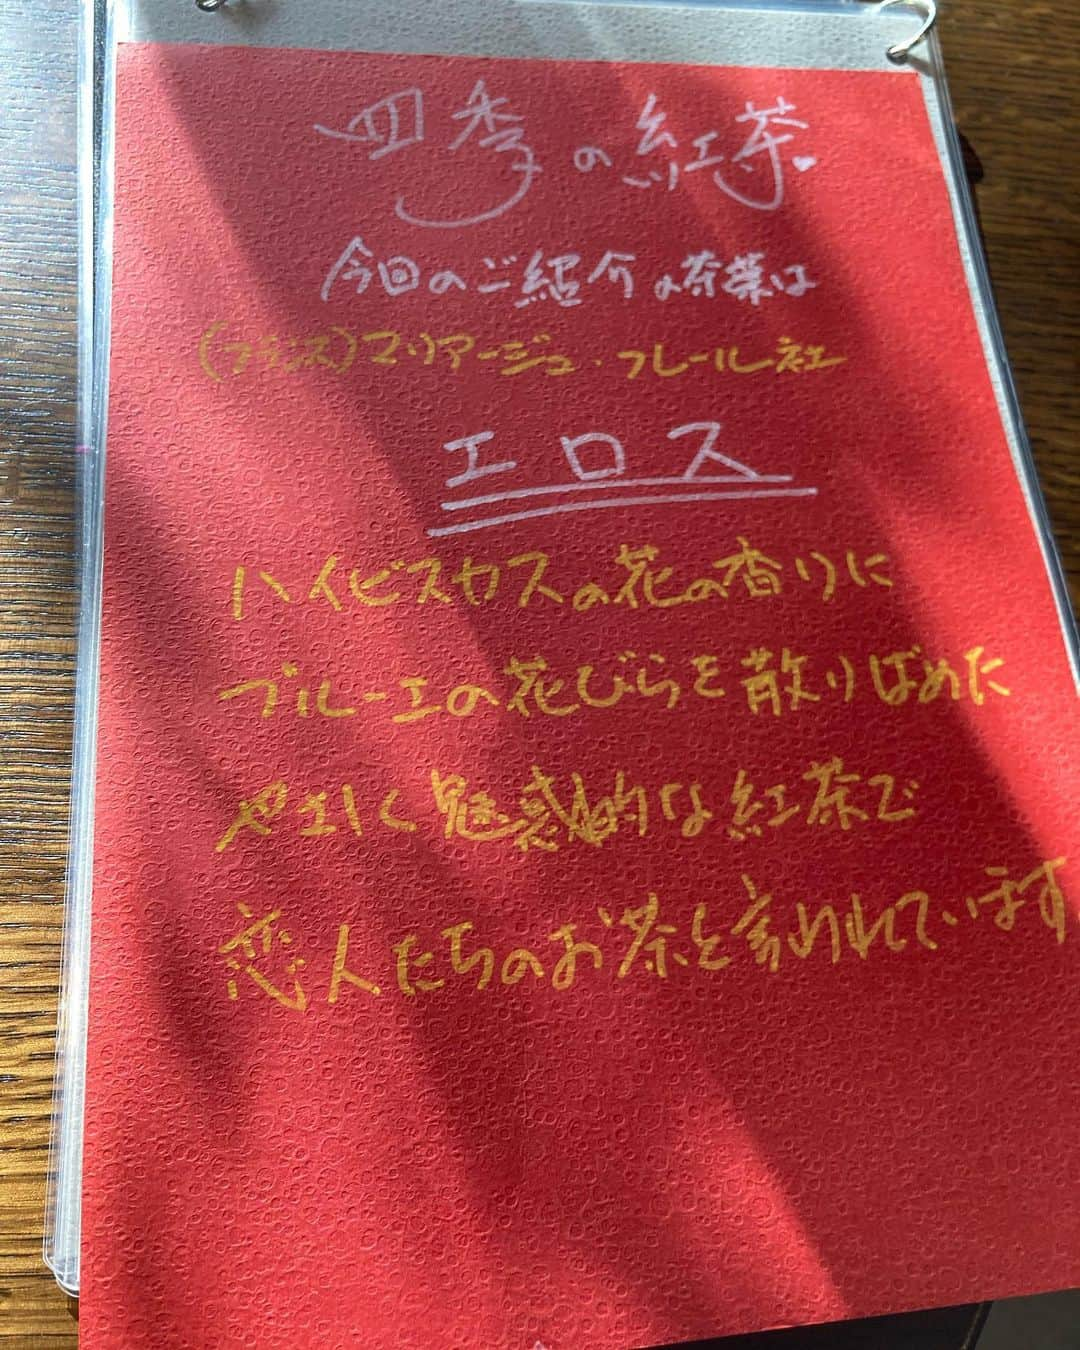 四季の紅茶♥
今回のご紹介の茶葉は
(フランス)マリアージュ・フレール社
エロス
ハイビスカスの花の香りに
ブルーエの花びらを散りばめた
やさしく魅惑的な紅茶で
恋人たちのお茶と言われています